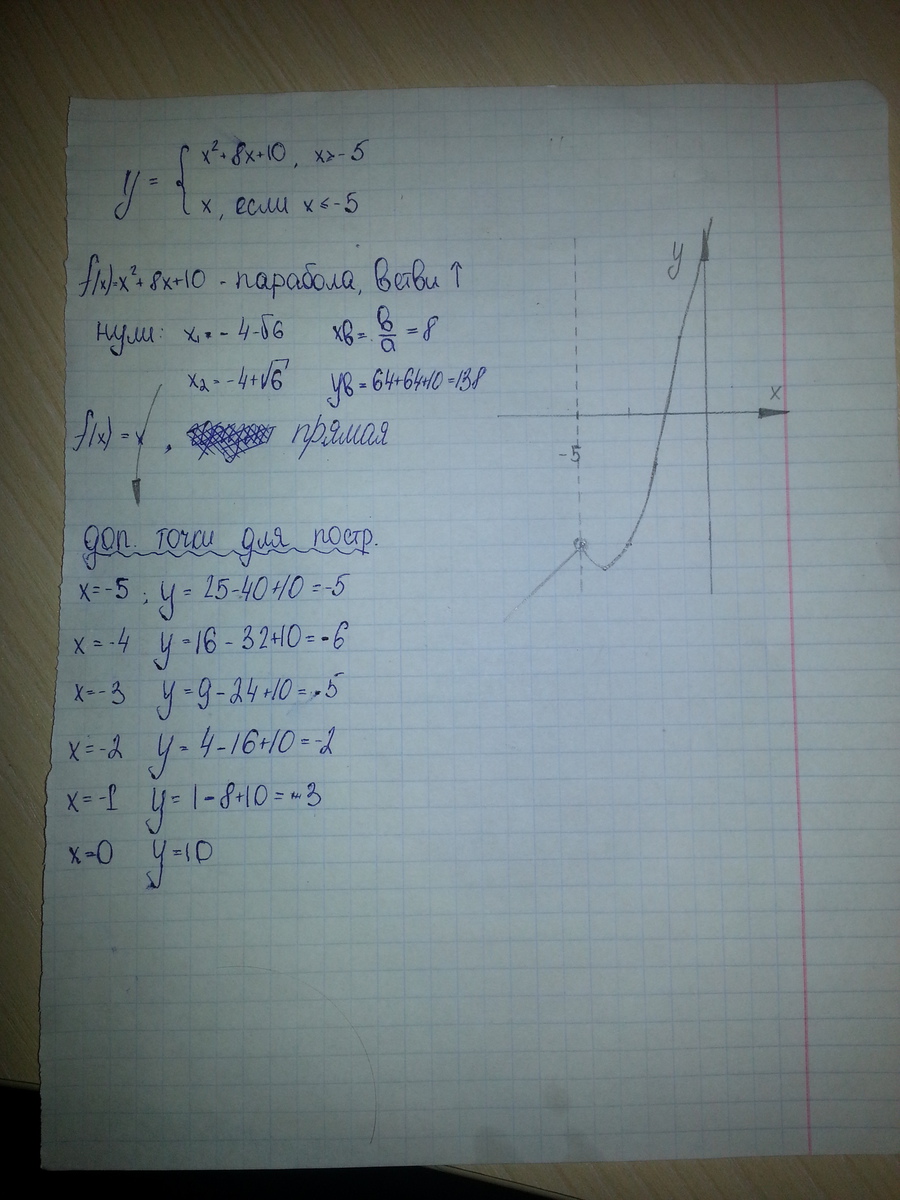 y = { x²+8x+10, x≥-5
x, если x≤-5
f(x)=x²+8x+10 - парабола, ветви ↑
нули: x₁=-4-√6 xв = в/а = 8
x₂=-4+√6 yв = 64+64+10=138
f(x) = x, прямая
доп. точки для постр.
x=-5; y = 25-40+10=-5
x=-4 y=16-32+10=-6
x=-3 y=9-24+10=-5
x=-2 y=4-16+10=-2
x=-1 y=1-8+10=-3
x=0 y=10
y
x
-5